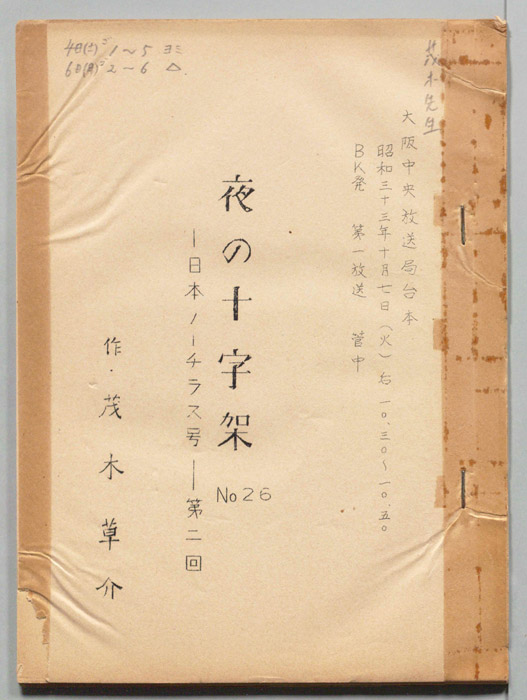 茂木先生
大阪中央放送局台本
昭和三十三年十月七日(火)右一〇.三〇〜一〇.五〇
BK発 第一放送 管中
夜の十字架 No26
―日本ノーチラス号―第二回
作・茂木草介
4日(土)ゴ1〜5 ヨミ
6日(月)ゴ2〜6 △